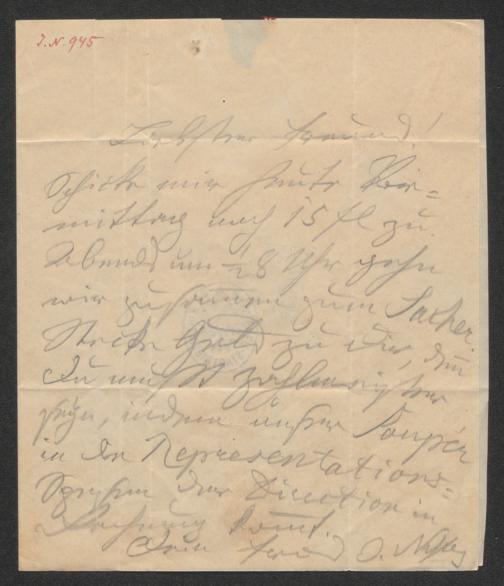 J. N. 945
Liebster Freund!
Schicke mir heute Vor=
mittag noch 15 fl zu.
Abends um ½8 Uhr gehn
wir zusammen zum Sacher.
Stecke Geld zu dir, denn
du mußt
sein, indem unser Souper
in den Representations=
Spesen der Direction in
Rechnung kommt.
Dein Freund